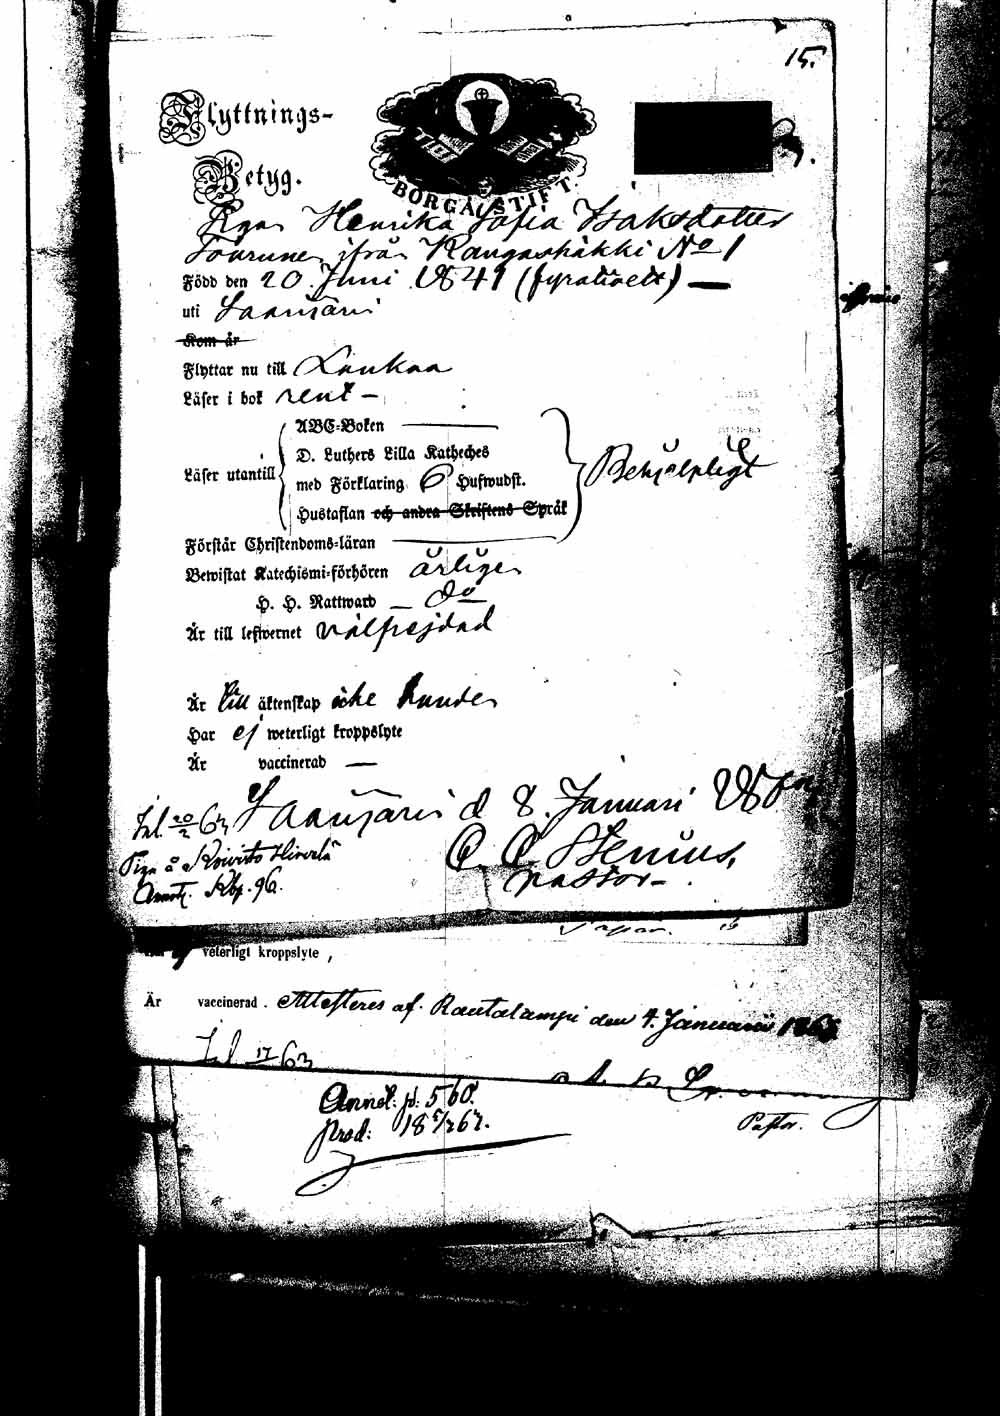 15.
Flyttnings-
Betyg.
BORGÅ STIFT.
Pigan Henrika Sofia Isaksdotter
Tourunen ifrån Kangashäkki No 1
Född den 20 Juni 1841 (fyratioett) —
uti Saarijärvi
Kom år
Flyttar nu till Laukaa
Läser i bok rent —
ABC-Boken
D. Luthers Lilla Katheches
Läser utantill
med Förklaring 6 Hufwudst.
Behjelpligt
Hustaflan och andra Skriftens Språk
Förstår Christendoms-läran
Bewistat Katechismi-förhören årligen
H. H. Nattward — do
Är till lefwernet välfrejdad
Är till äktenskap icke bunden
Har ej weterligt kroppslyte
Är vaccinerad —
Saarijärvi d 8. Januari
Inl. 20/2 63
C. C. Stenius,
Piga å Koivisto Hirvelä
pastor.
Annot. Kbp. 96.
veterligt kroppslyte,
Är vaccinerad. Attesteres af. Rautalampi den 4. Januari
Inl 17 63
Annot: p. 560.
Prod:
Pastor.